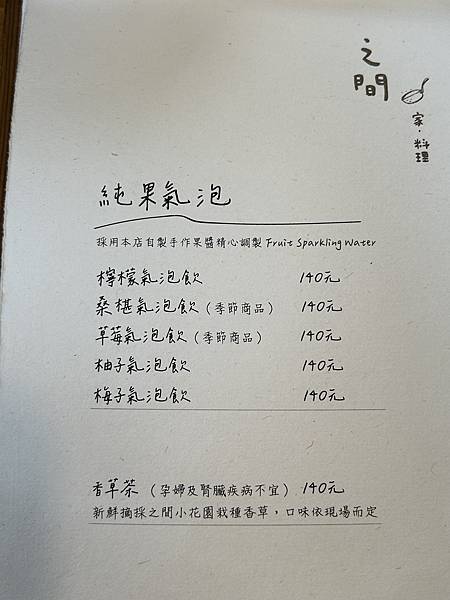 之間
家·料理
純果氣泡
採用本店自製手作果醬精心調製 Fruit Sparkling Water
檸檬氣泡飲 140元
桑椹氣泡飲（季節商品） 140元
草莓氣泡飲（季節商品） 140元
柚子氣泡飲 140元
梅子氣泡飲 140元
香草茶（孕婦及腎臟疾病不宜） 140元
新鮮摘採之間小花園栽種香草，口味依現場而定